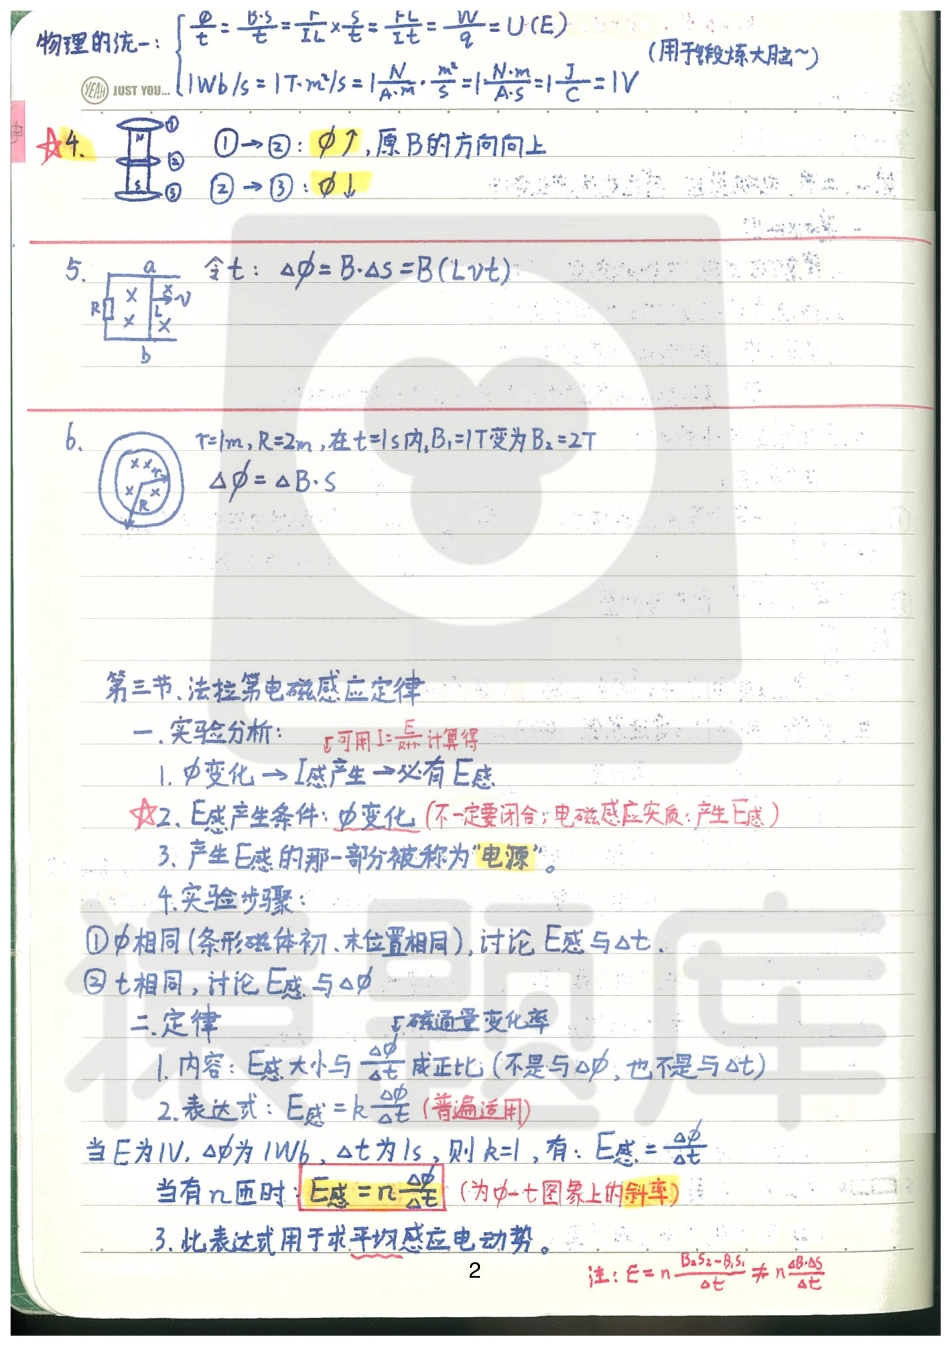 物理的统一: { φ/t = B·S/t = F/IL × S/t = FL/It = W/q = U(E)
1Wb/s = 1T·m²/s = 1 N/A·m · m²/s = 1 N·m/A·s = 1 J/C = 1V (用于锻炼大脑~)
YEAH JUST YOU...
☆4. N S ① ② ③ ①→②: φ↑,原B的方向向上
②→③: φ↓
5. a b R L v × × × × 令t: Δφ=B·ΔS=B(Lvt)
6. r R × × × × r=1m,R=2m,在t=1s内,B₁=1T变为B₂=2T
Δφ=ΔB·S
第三节、法拉第电磁感应定律
一.实验分析:
↓可用I=E/R+r计算得
1. φ变化→I感产生→必有E感
☆2. E感产生条件: φ变化(不一定要闭合;电磁感应实质:产生E感)
3. 产生E感的那一部分被称为"电源"。
4.实验步骤:
①φ相同(条形磁体初、末位置相同),讨论E感与Δt.
②t相同,讨论E感与Δφ
二.定律 ↓磁通量变化率
1.内容: E感大小与Δφ/Δt成正比(不是与Δφ,也不是与Δt)
2.表达式: E感=k Δφ/Δt (普遍适用)
当E为1V,Δφ为1Wb,Δt为1s,则k=1,有: E感=Δφ/Δt
当有n匝时: E感=n Δφ/Δt (为φ-t图象上的斜率)
3.此表达式用于求平均感应电动势。
2
注: E=n B₂S₂-B₁S₁/Δt ≠ n ΔB·ΔS/Δt
猿题库